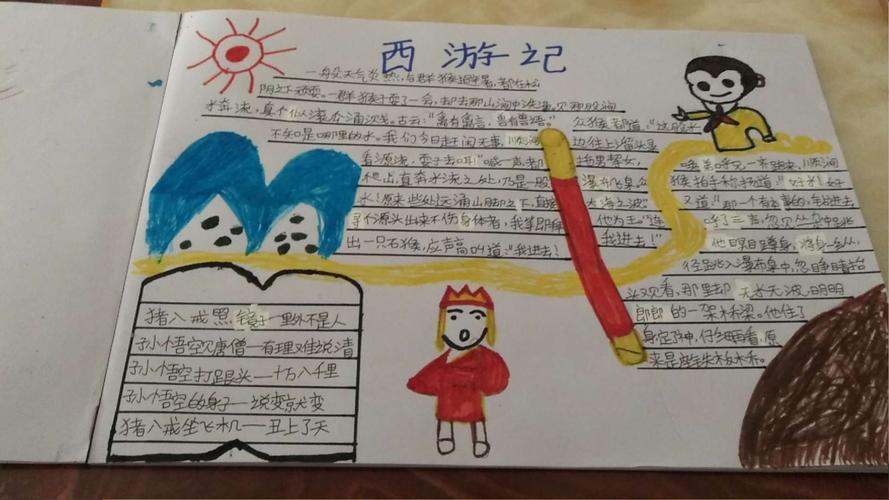 西游记
一段天气炎热,与群猴避暑,都在松
阴之下顽耍。一群猴子耍了一会,却去那山涧中洗澡。见那股涧
水奔流,真个似滚瓜涌溅。古云:"禽有禽言,兽有兽语。" 众猴都道:"这股水
不知是哪里的水。我们今日赶闲无事,顺涧 边往上溜头寻
看源流,耍子去口耳!"喊一声,都 拖男挈女,
爬山,直奔水流之处,乃是一股 瀑布飞泉,众
水!原来此处远通山脚之下,直 大海之波"
寻个源头出来不伤身体者,我等即拜 他为王"连
出一只石猴,应声高叫道:"我进去! 我进去!"
唤弟呼兄一齐跑来,顺涧
猴拍手称扬道:"好水!好
又道:"那一个有本事的,钻进去
呼了三声,忽见丛杂中跳
他瞑目蹲身,将身一纵,
径跳入瀑布泉中,忽睁睛抬
头观看,那里却无水无波,明明
郎郎的一架桥梁。他住了
身,定了神,仔细再看,原
来是座铁板桥。
猪八戒照镜子一里外不是人
孙小悟空见唐僧一有理难说清
孙小悟空打跟头一十万八千里
孙小悟空的身子一说变就变
猪八戒坐飞机一丑上了天